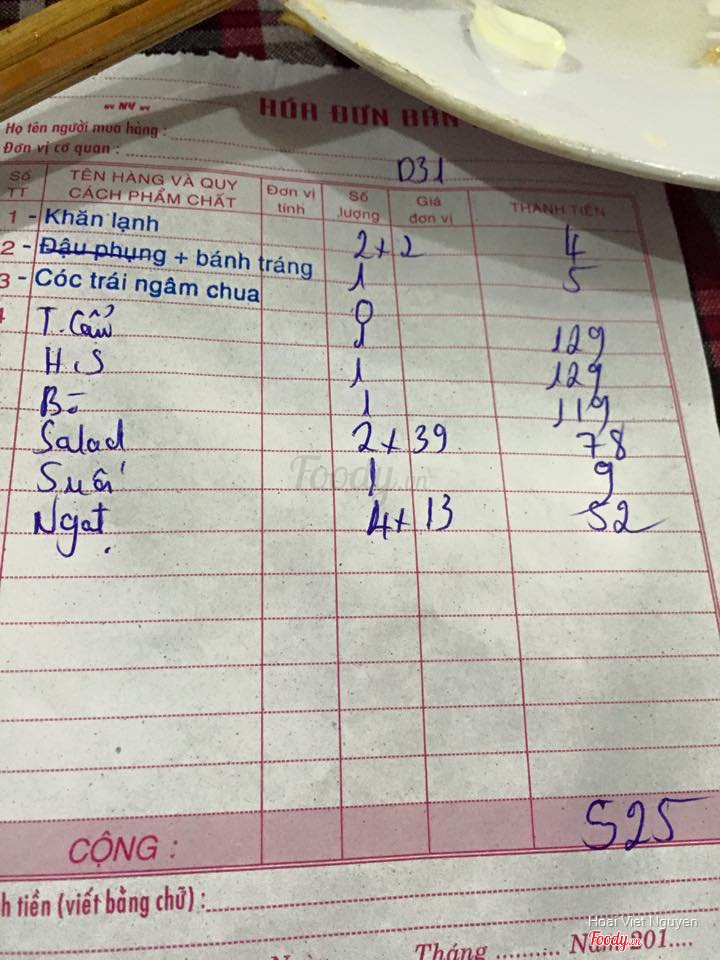 HÓA ĐƠN BÁN
Họ tên người mua hàng :
Đơn vị cơ quan :
D31
Số TT TÊN HÀNG VÀ QUY CÁCH PHẨM CHẤT Đơn vị tính Số lượng Giá đơn vị THÀNH TIỀN
1 - Khăn lạnh 2 x 2 4
2 - Đậu phụng + bánh tráng 1 5
3 - Cóc trái ngâm chua 0
T. Cẩu 1 129
H.S 1 129
Bò 1 119
Salad 2 x 39 78
Suối 1 9
Ngọt 4 x 13 52
Foody.vn
CỘNG : 525
h tiền (viết bằng chữ) :
Hoai Viet Nguyen
Foody.vn
Tháng .......... Năm 201....